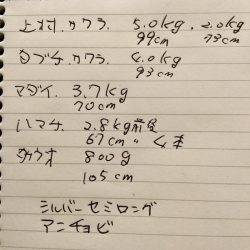 上村.サワラ. 5.0kg . 2.0kg
99cm 73cm
タブチ.サワラ. 4.0kg
93cm
マダイ. 3.7kg
70cm
ハマチ. 2.8kg前後
67cm 〃 4本
タチウオ 800g
105cm
シルバーセミロング
アンチョビ